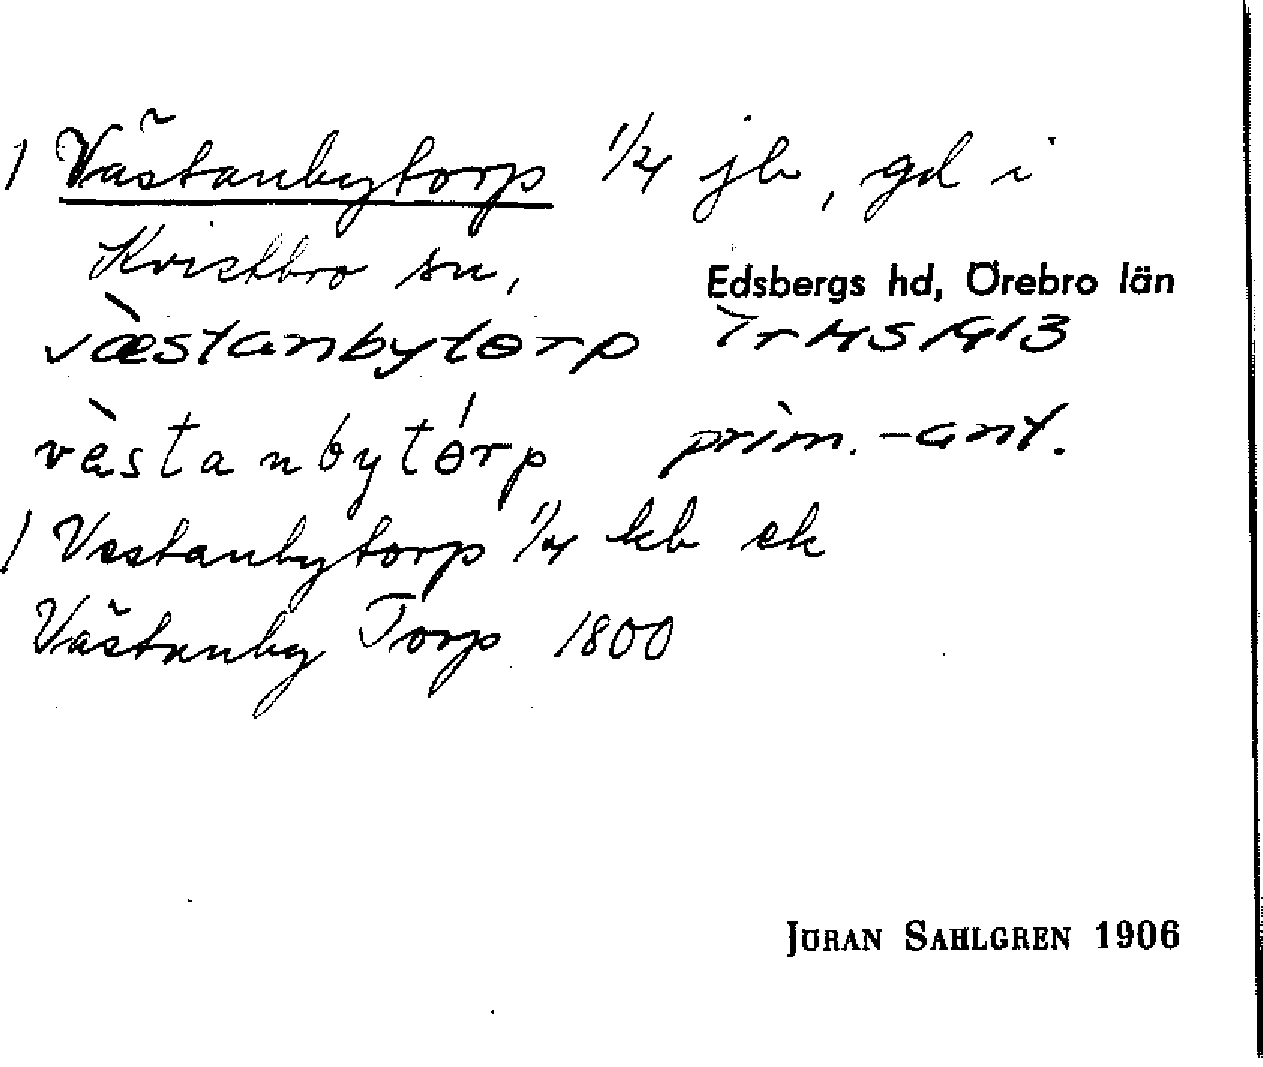 1 Västanbytorp 1/4 jb, gd i
Kvistbro sn, Edsbergs hd, Örebro län
væ̀stanbytɵrp Tr HS 1913
vèstanbytɵ́rp prim.-ant.
1 Vestanbytorp 1/4 kb ek
Västanby Torp 1800
JÖRAN SAHLGREN 1906